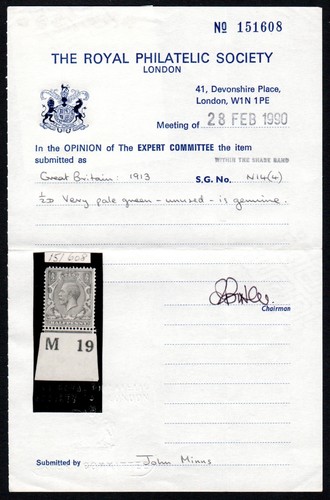 No 151608
THE ROYAL PHILATELIC SOCIETY
LONDON
41, Devonshire Place,
London, W1N 1PE
Meeting of 28 FEB 1990
In the OPINION of The EXPERT COMMITTEE the item
submitted as WITHIN THE SHADE BAND
Great Britain: 1913 S.G. No. N14(4)
½D Very pale green - unused - is genuine.
151608
M 19
Chairman
Submitted by John Minns